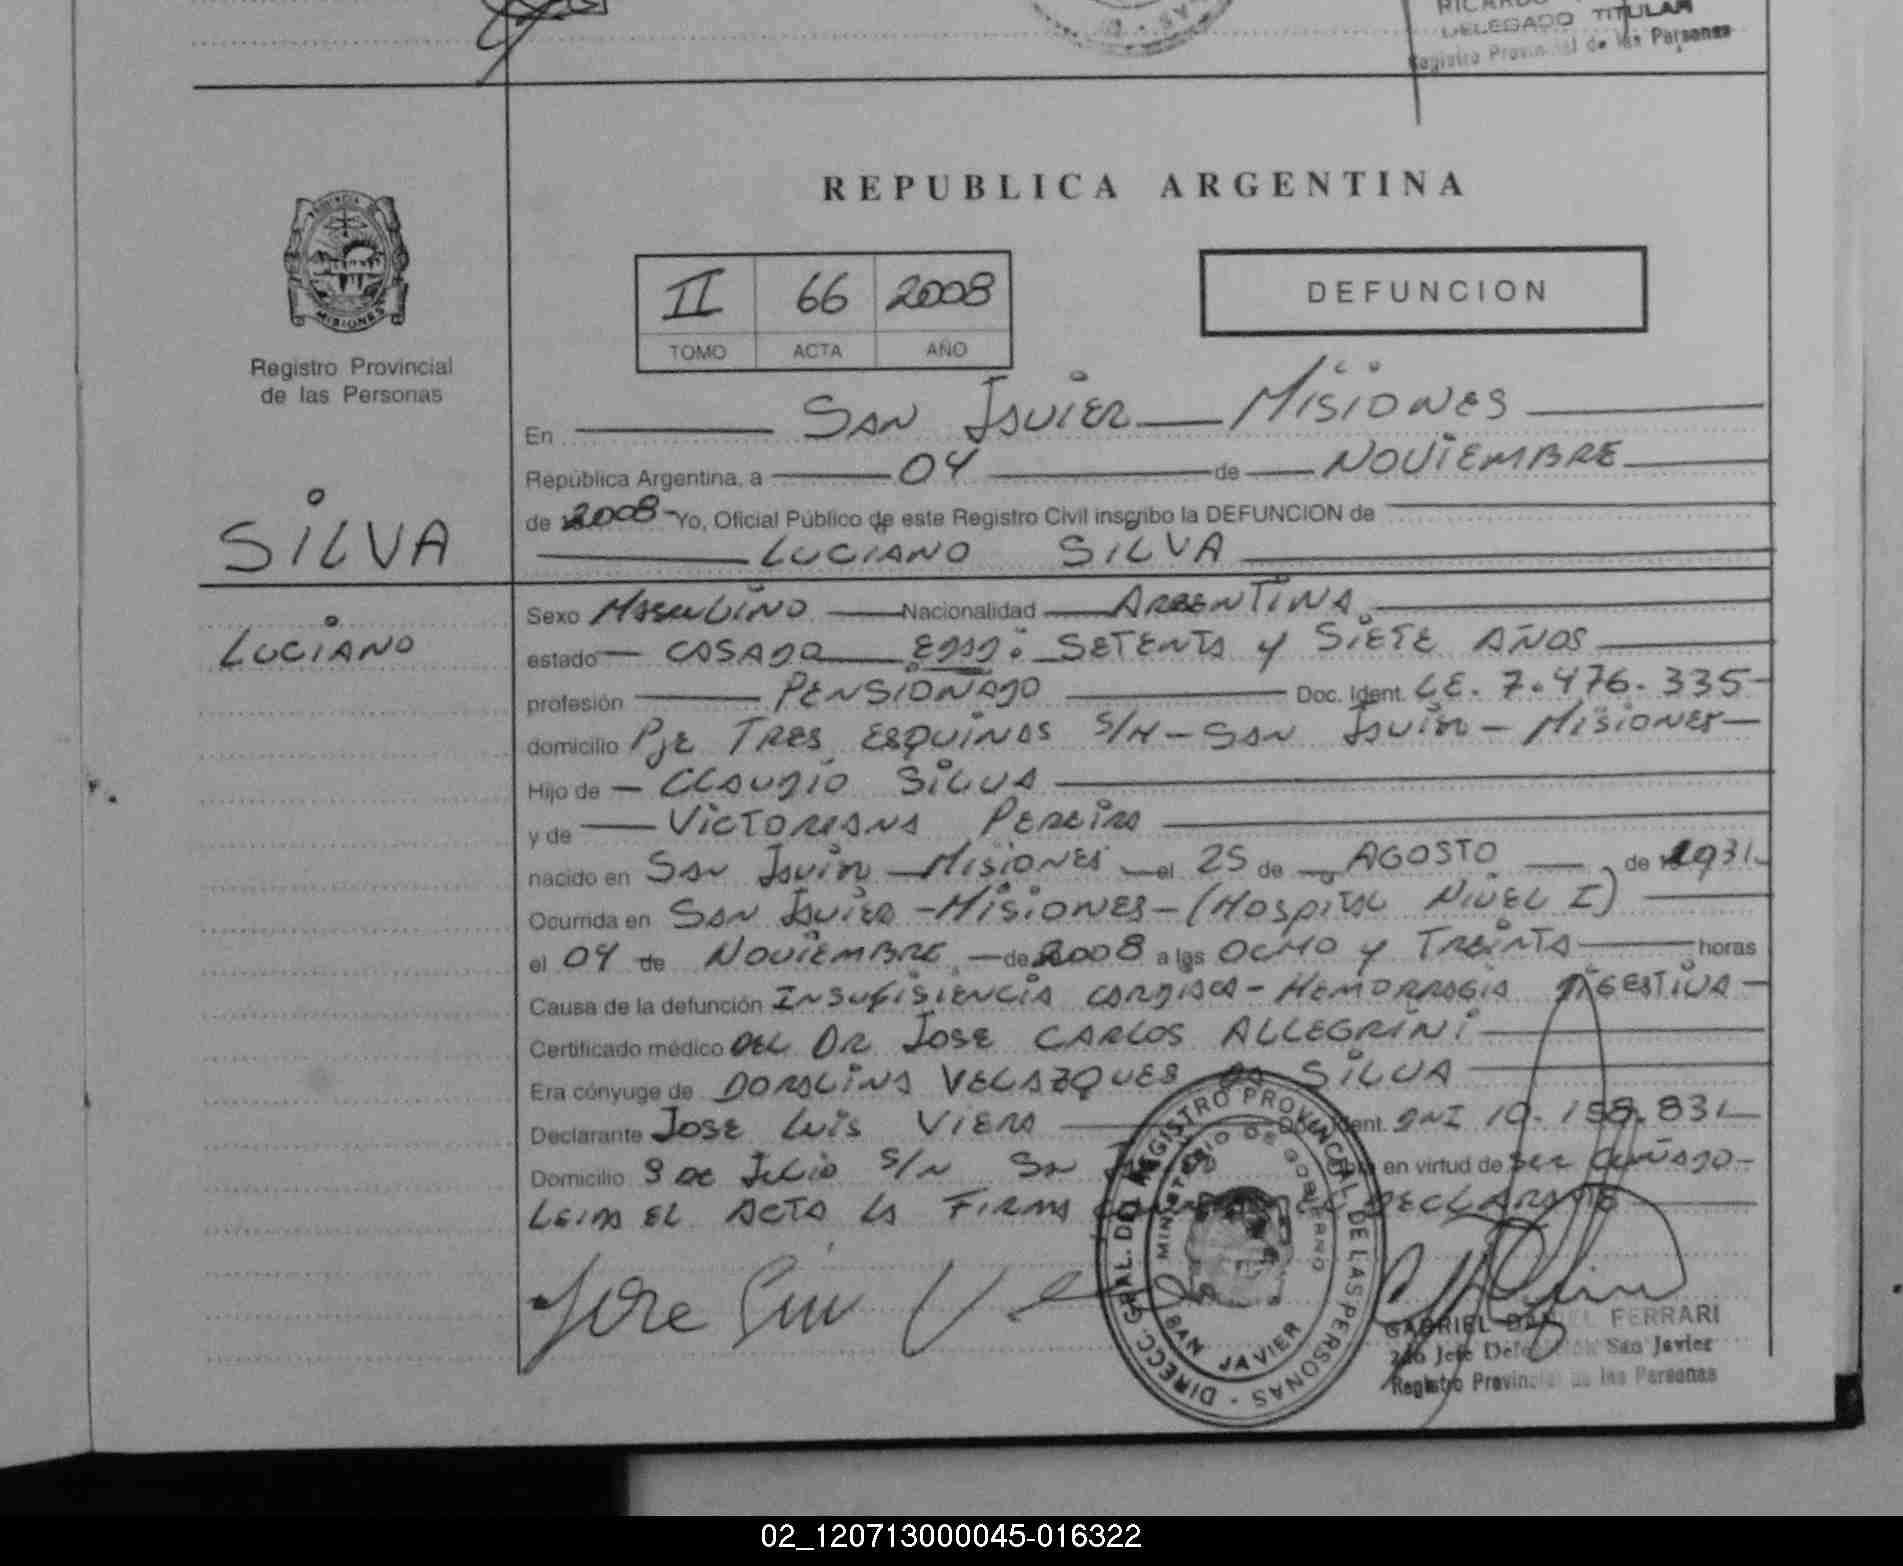 RICARDO
DELEGADO TITULAR
Registro Provincial de las Personas
REPUBLICA ARGENTINA
PROVINCIA DE
MISIONES
Registro Provincial
de las Personas
II 66 2008
TOMO ACTA AÑO
DEFUNCION
En SAN JAVIER MISIONES
República Argentina, a 04 de NOVIEMBRE
de 2008 Yo, Oficial Público de este Registro Civil inscribo la DEFUNCION de
SILVA
LUCIANO SILVA
LUCIANO
Sexo MASCULINO Nacionalidad ARGENTINA
estado CASADO EDAD: SETENTA y SIETE AÑOS
profesión PENSIONADO Doc. Ident. L.E. 7.476.335
domicilio PJE TRES ESQUINAS S/N - SAN JAVIER - MISIONES
Hijo de CLAUDIO SILVA
y de VICTORIANA PEREIRA
nacido en SAN JAVIER - MISIONES el 25 de AGOSTO de 1931
Ocurrida en SAN JAVIER - MISIONES - (HOSPITAL NIVEL I)
el 04 de NOVIEMBRE de 2008 a las OCHO y TREINTA horas
Causa de la defunción INSUFISIENCIA CARDIACA - HEMORRAGIA DIGESTIVA
Certificado médico DEL DR JOSE CARLOS ALLEGRINI
Era cónyuge de DORALINA VELAZQUES DE SILVA
Declarante JOSE LUIS VIERA Doc. Ident. DNI 10.158.831
Domicilio 9 DE JULIO S/N SAN JAVIER Obra en virtud de SER CUÑADO
LEIDA EL ACTA LA FIRMA EL DECLARANTE
Jose Luis
DIRECC. GRAL. DEL REGISTRO PROVINCIAL DE LAS PERSONAS
MINISTERIO DE GOBIERNO
SAN JAVIER
GABRIEL DANIEL FERRARI
2do Jefe Delegación San Javier
Registro Provincial de las Personas
02_120713000045-016322